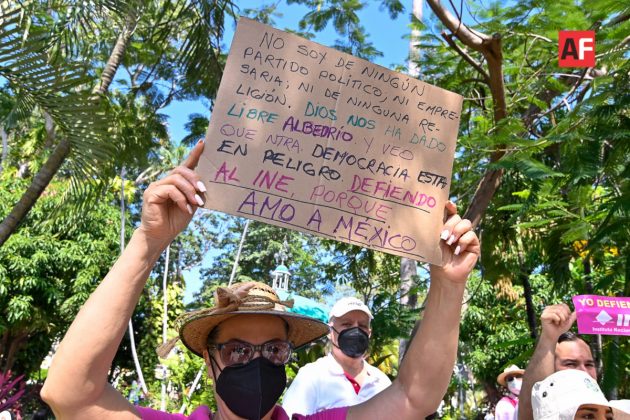 AF
NO SOY DE NINGÚN
PARTIDO POLÍTICO, NI EMPRE-
SARIA; NI DE NINGUNA RE-
LIGIÓN. DIOS NOS HA DADO
LIBRE ALBEDRÍO Y VEO
QUE NTRA DEMOCRACIA ESTA
EN PELIGRO. DEFIENDO
AL INE, PORQUE
AMO A MÉXICO
YO DEFIEN
IN
Instituto Nacional